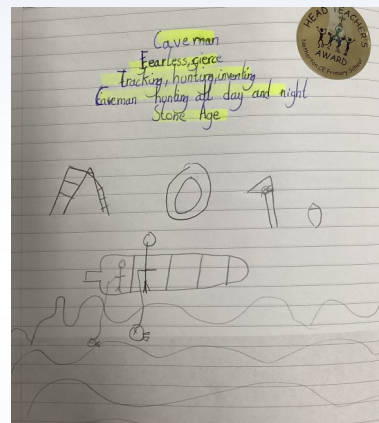 Caveman
Fearless, fierce
Tracking, hunting, inventing
Caveman hunting all day and night
Stone Age
HEAD TEACHER'S
AWARD